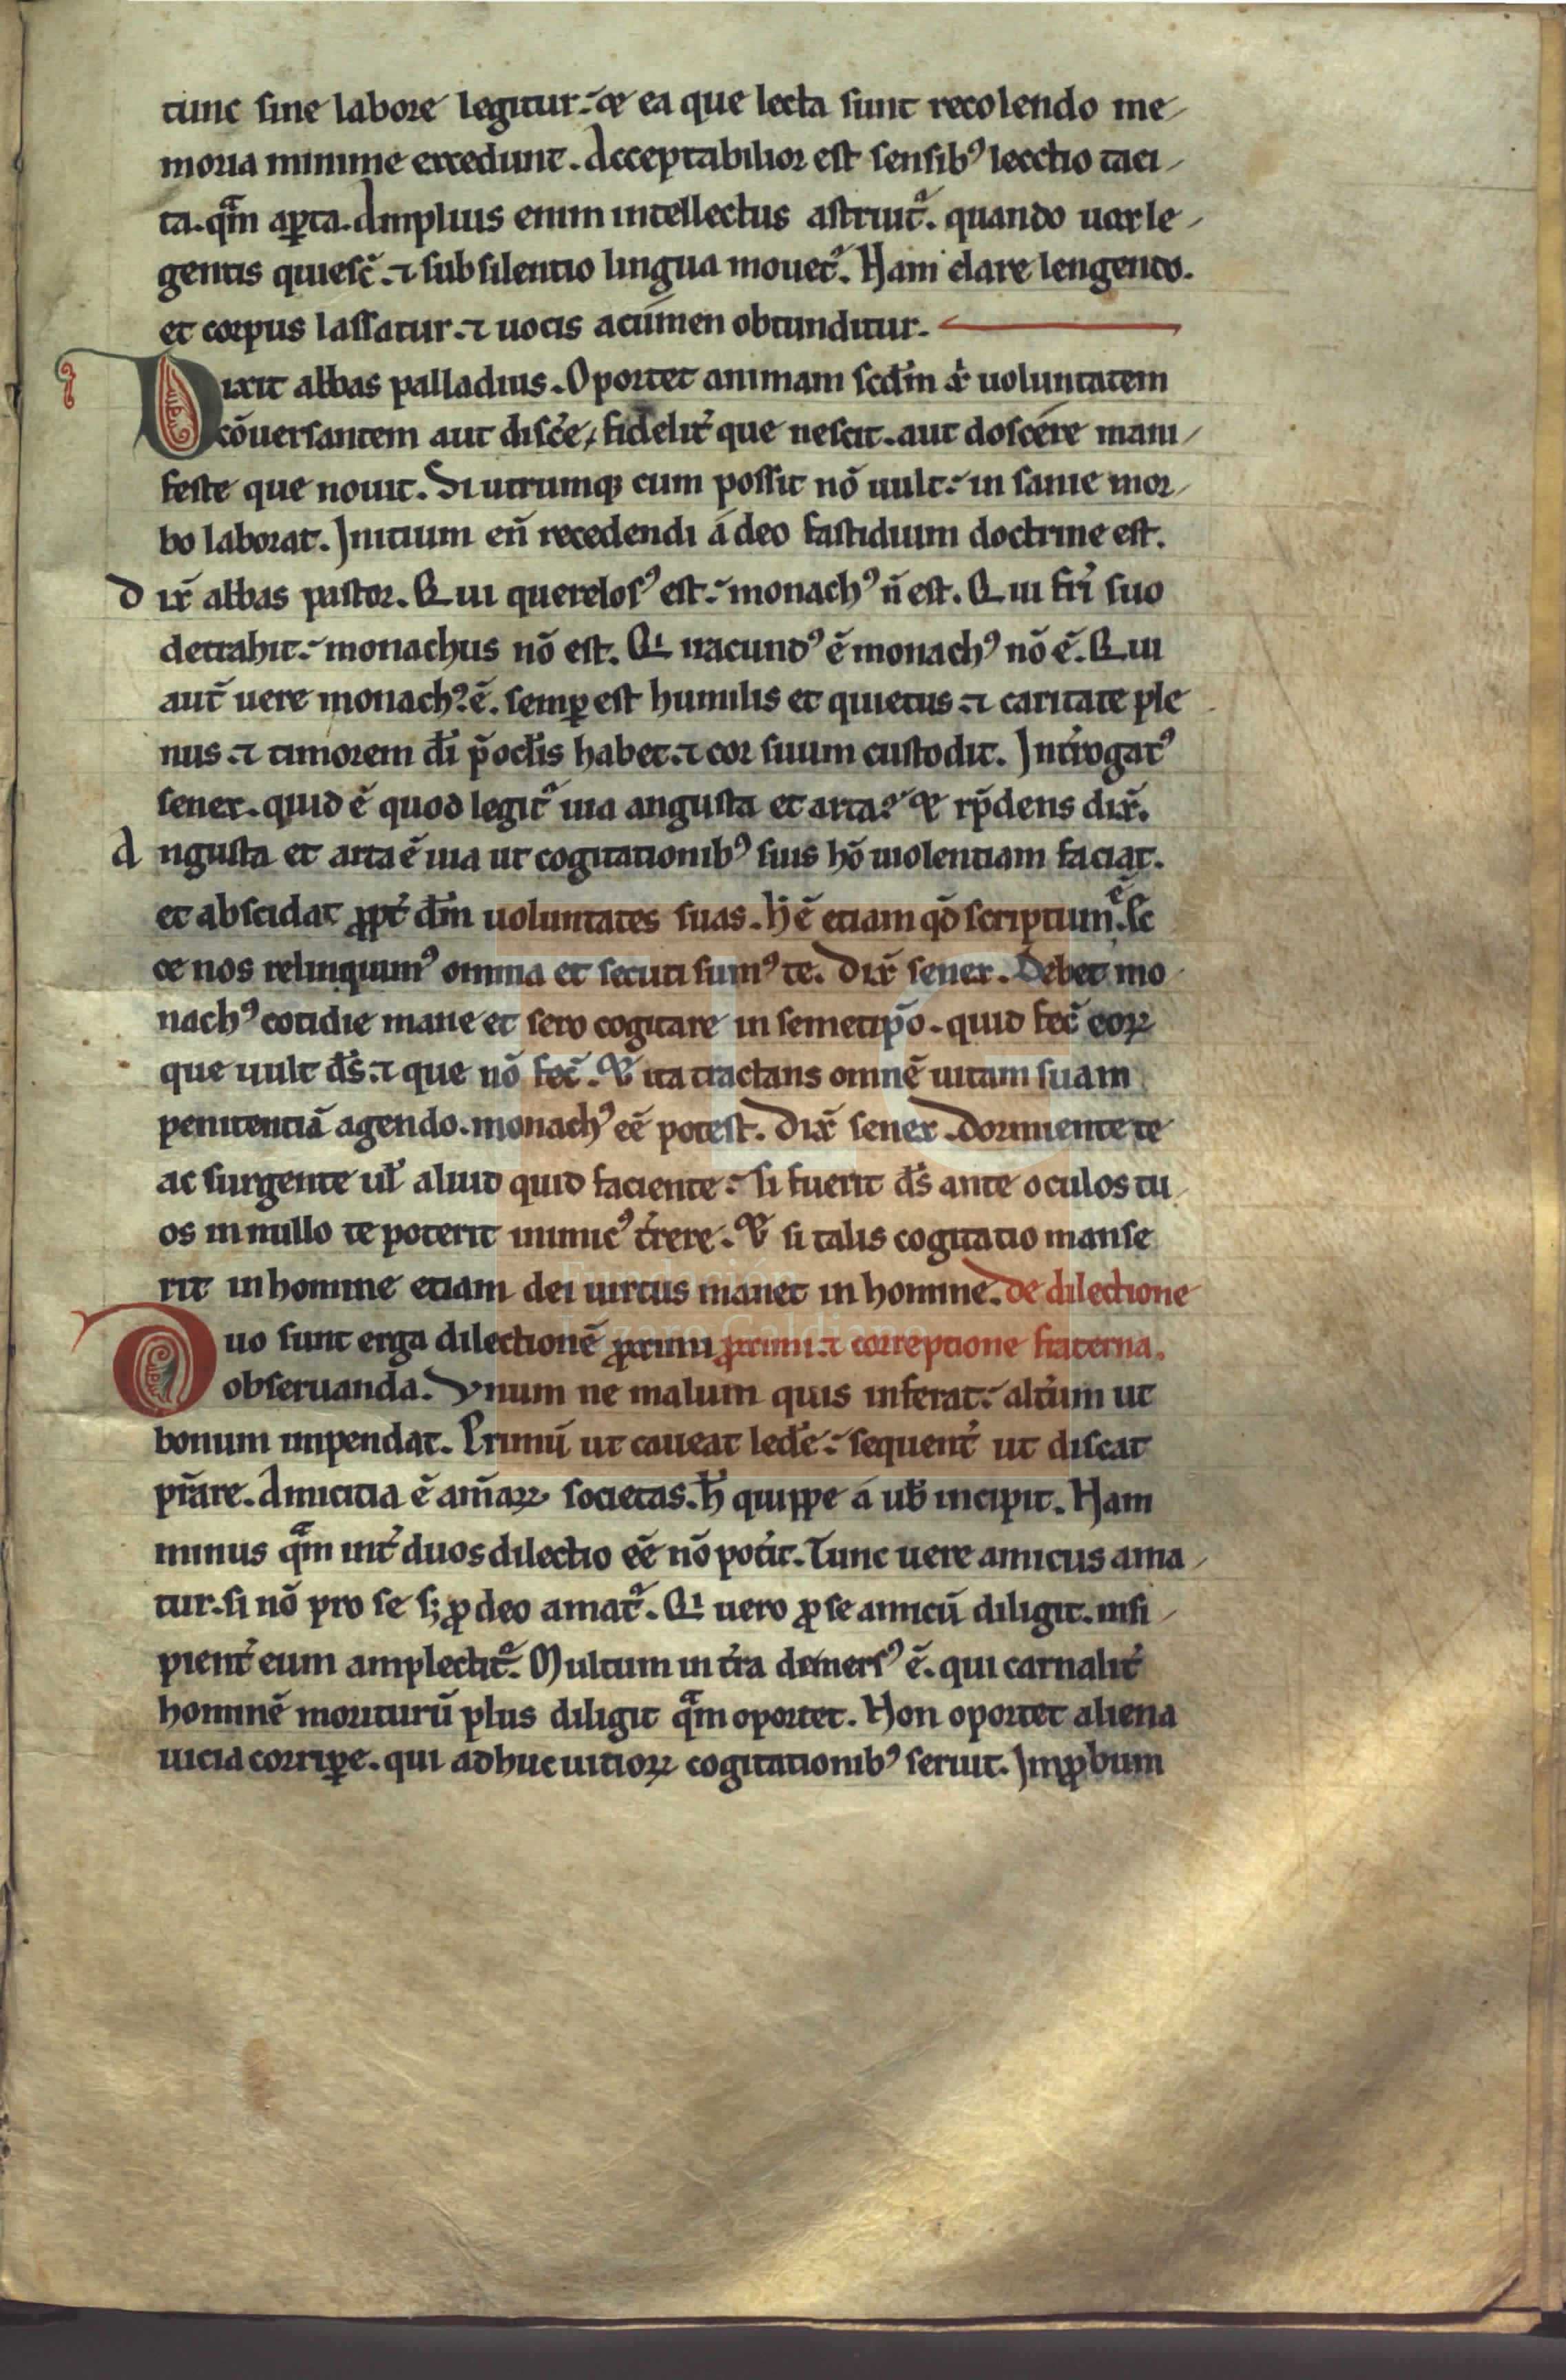 tunc sine labore legitur. & ea que lecta sunt recolendo me-
moria minime excedunt. Acceptabilior est sensibꝰ lecctio taci-
ta. qm̄ aꝑta. Amplius enim intellectus astruit᷑. quando uox le-
gentis quiesc̄. ⁊ sub silentio lingua mouet᷑. Nam clare lengendo.
et corpus lassatur. ⁊ uocis acúmen obtunditur.
Dixit abbas palladius. Oportet animam scdm̄ xp̄i uoluntatem
cōuersantem aut disc̄e, fidelit̄ que nescit. aut doscére mani-
feste que nouit. Si utrumqꝫ cum possit nō uult. in sanie mor-
bo laborat. Initium en̄ recedendi á deo fastidium doctrine est.
Dix̄ abbas pastor. Qui querelosꝰ est. monachꝰ n̄ est. Qui fr̄i suo
detrahit. monachus nō est. Qi iracundꝰ ē monachꝰ nō ē. Qui
aut̄ uere monachꝰ ē. semꝑ est humilis et quietus ⁊ caritate ple
nus. ⁊ timorem dī p̄ oc̄lis habet. ⁊ cor suum custodit. Int̄rogatꝰ
senex. quid ē quod legit᷑ uia angusta et arta? & rp̄dens dix̄.
Angusta et arta ē uia ut cogitationibꝰ suis hō uiolentiam faciat.
et abscidat ꝓpt̄ dm̄ uoluntates suas. h̄ ē etiam qd̄ scriptum ē. Ec
ce nos relinquimꝰ omnia et secuti sumꝰ te. Dix̄ senex. Debet mo
nachꝰ cotidie mane et sero cogitare in semetip̄o. quid fec̄ eoꝝ
que uult ds̄. ⁊ que nō fec̄. & ita tractans omnē uitam suam
penitentiā agendo. monachꝰ eē potest. Dix̄ senex. dormiente te
ac surgente ul̄ aliud quid faciente. si fuerit ds̄ ante oculos tu-
os in nullo te poterit inimicꝰ t̄rere. & si talis cogitatio manse
rit in homine etiam dei uirtus manet in homine. de dilectione
Duo sunt erga dilectionē ꝓximi ꝓximi. ⁊ correptione fraterna.
obseruanda. Vnum ne malum quis inferat. alt̄um ut
bonum inpendat. Primū ut caueat led̄e. sequent̄ ut discat
pr̄are. Amicitia ē am̄aꝝ societas. h̄ quippe á ub̄ incipit. Nam
minus qm̄ int̄ duos dilectio eē nō pot̄it. Tunc uere amicus ama-
tur. si nō pro se sꝫ ꝓ deo amat᷑. Qi uero ꝓ se amicū diligit. insi-
pient̄ eum amplectit᷑. Multum in t̄ra demersꝰ ē. qui carnalit̄
hominē moriturū plus diligit qm̄ oportet. Non oportet aliena
uicia corriꝑe. qui adhuc uitioꝝ cogitationibꝰ seruit. Imꝓbum